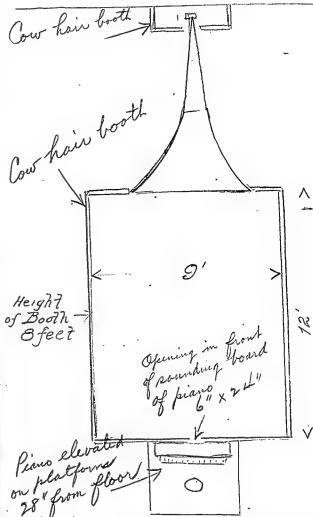 Cow hair booth
Cow hair booth
9'
Height
of Booth
8 feet
12'
Opening in front
of sounding board
of piano
6" x 24"
Piano elevated
on platform
28" from floor